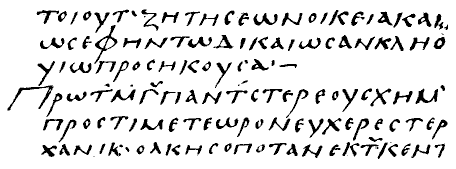 ΤΟΙΟΥΤ·ΖΗΤΗСΕΩΝΟΙΚΕΙΑΚΑΙ
ΩСΕΦΗΝΤΩΔΙΚΑΙΩСΑΝΚΛΗΘ
ΥΙΩΠΡΟСΗΚΟΥСΑ·—
ΠΡΩΤΜΓΠΑΝΤСΤΕΡΕΟΥСΧΗΜ
ΠΡΟСΤΙΜΕΤΕΩΡΟΝΕΥΧΕΡΕСΤΕΡ
ΧΑΝΙΚ·ΟΛΚΗСΟΠΟΤΑΝΕΚΤΚΕΝΤ